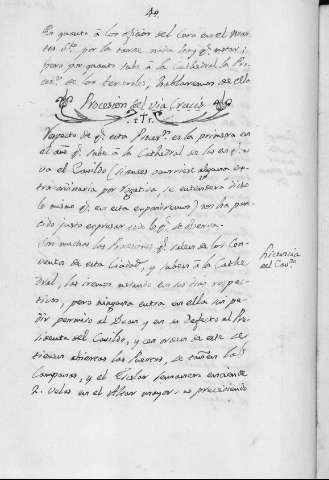 49.
En quanto â los oficios del Coro en el Mar-
tes Sto. por la tarde nada hay qe. notar;
pero por quanto sube â la Cathedral la Pro-
cesn. de los terceros, hablaremos de ella
Procesion del Via Crucis
Respecto de qe. esta Proces.n es la primera en
el año qe. sube â la Cathedral de las en qe. no
va el Cavildo (si no es ocurriese alguna ex-
traordinaria por Rogativa, se entenderá dicho
lo mismo qe. en esta expondremos) nos ha pare-
cido justo expresar todo lo qe. se observa.
Son muchas las Procesiones qe. salen de los Con-
ventos de esta Ciudad, y suben â la Cathe-
dral, las iremos notando en sus dias respec-
tivos, pero ninguna entra en ella sin pe-
dir permiso al Dean y en su defecto al Pre-
sidente del Cavildo, y con orden de este se
tienen abiertas las Puertas, se tañen las
Campanas, y el Titular semanero enciende
2. velas en el Altar mayor, no precediendo
Licencia
del Cavo.